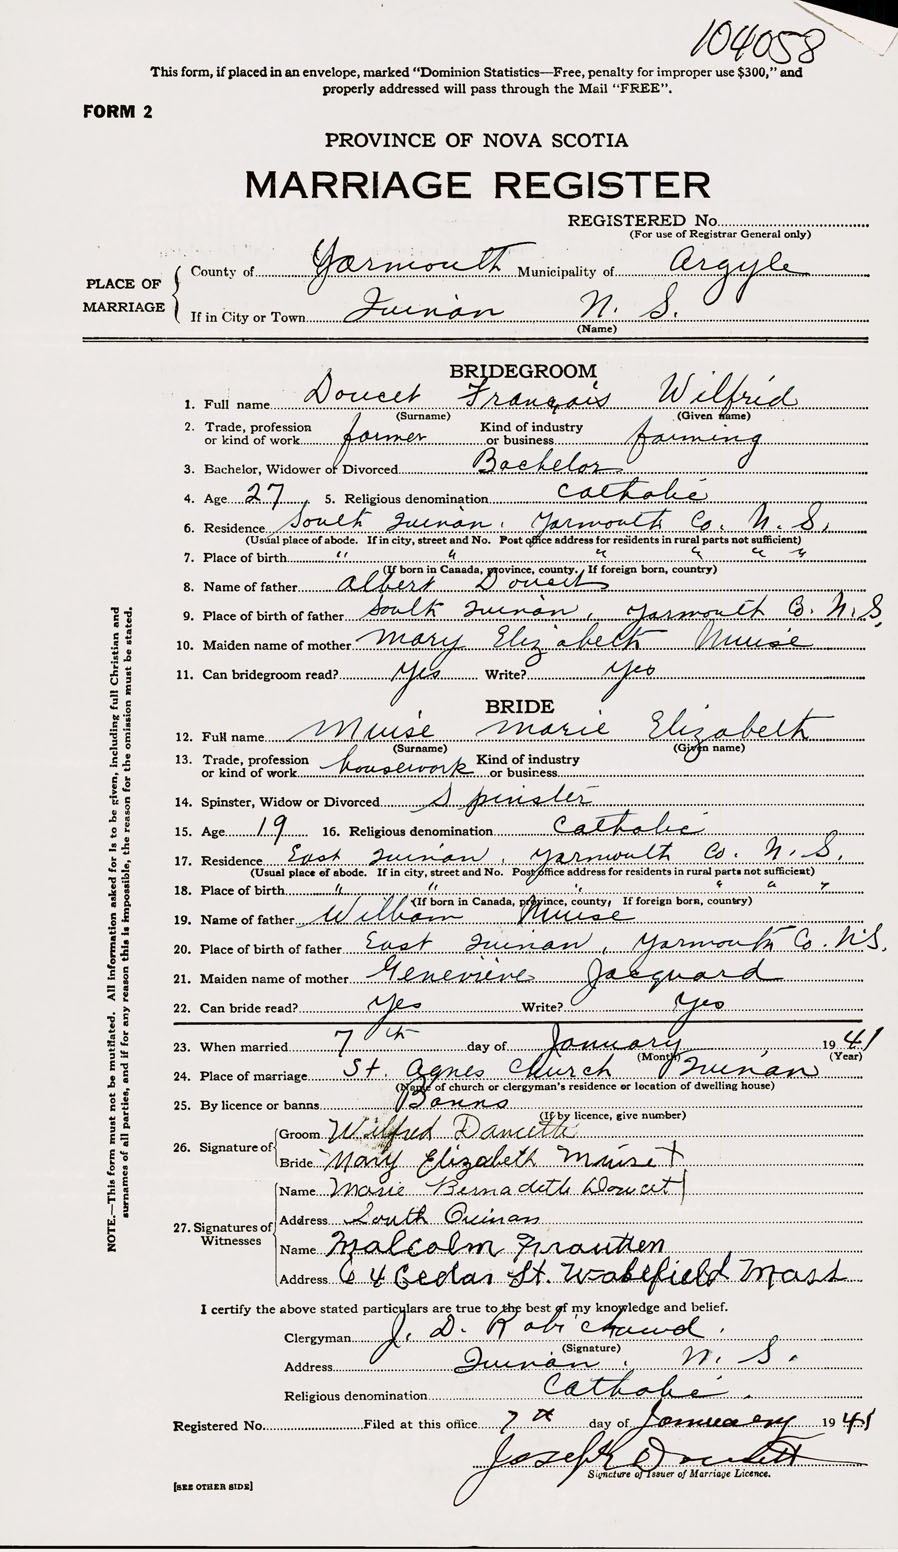 104058
This form, if placed in an envelope, marked "Dominion Statistics—Free, penalty for improper use $300," and
properly addressed will pass through the Mail "FREE".
FORM 2
PROVINCE OF NOVA SCOTIA
MARRIAGE REGISTER
REGISTERED No.
(For use of Registrar General only)
PLACE OF MARRIAGE
County of Yarmouth Municipality of Argyle
If in City or Town Quinan N. S.
(Name)
BRIDEGROOM
1. Full name Doucet François Wilfrid
(Surname) (Given name)
2. Trade, profession or kind of work farmer Kind of industry or business farming
3. Bachelor, Widower or Divorced Bachelor
4. Age 27 5. Religious denomination Catholic
6. Residence South Quinan, Yarmouth Co. N. S.
(Usual place of abode. If in city, street and No. Post office address for residents in rural parts not sufficient)
7. Place of birth " " " " " "
(If born in Canada, province, county. If foreign born, country)
8. Name of father Albert Doucet
9. Place of birth of father South Quinan, Yarmouth Co. N. S.
10. Maiden name of mother Mary Elizabeth Muise
11. Can bridegroom read? Yes Write? Yes
BRIDE
12. Full name Muise Marie Elizabeth
(Surname) (Given name)
13. Trade, profession or kind of work housework Kind of industry or business
14. Spinster, Widow or Divorced Spinster
15. Age 19 16. Religious denomination Catholic
17. Residence East Quinan, Yarmouth Co. N. S.
(Usual place of abode. If in city, street and No. Post office address for residents in rural parts not sufficient)
18. Place of birth " " " " " "
(If born in Canada, province, county, If foreign born, country)
19. Name of father William Muise
20. Place of birth of father East Quinan, Yarmouth Co. N.S.
21. Maiden name of mother Geneviève Jacquard
22. Can bride read? Yes Write? Yes
23. When married 7th day of January, 1941
(Month) (Year)
24. Place of marriage St. Agnes Church Quinan
(Name of church or clergyman's residence or location of dwelling house)
25. By licence or banns Banns
(If by licence, give number)
26. Signature of
Groom Wilfred Doucette
Bride Mary Elizabeth Muise +
27. Signatures of Witnesses
Name Marie Bernadette Doucet
Address South Quinan
Name Malcolm
Address 64 Cedar St. Wakefield Mass
I certify the above stated particulars are true to the best of my knowledge and belief.
Clergyman J. D. Robichaud.
(Signature)
Address Quinan, N. S.
Religious denomination Catholic.
Registered No. Filed at this office 7th day of January 1941
Joseph Doucett
Signature of Issuer of Marriage Licence.
[SEE OTHER SIDE]
NOTE.—This form must not be mutilated. All information asked for is to be given, including full Christian and
surnames of all parties, and if for any reason this is impossible, the reason for the omission must be stated.